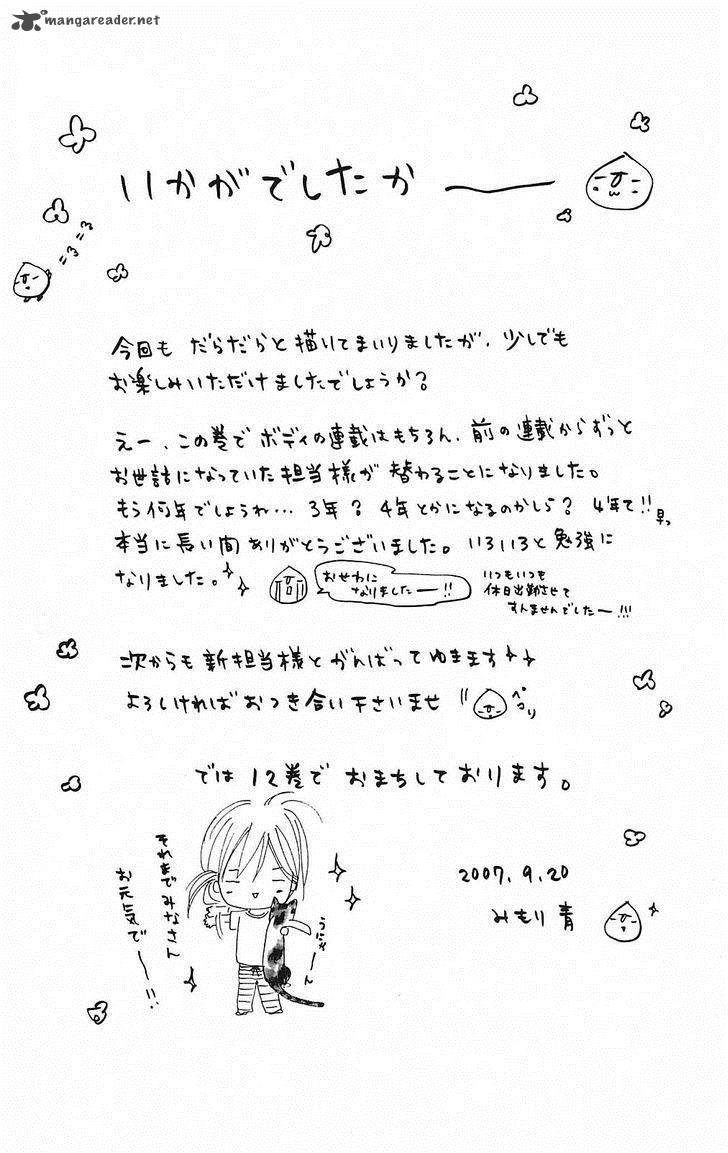 mangareader.net
いかがでしたかー
=3 =3
今回も だらだらと描いてまいりましたが、少しでも
お楽しみいただけましたでしょうか?
えー、この巻で ボディの連載はもちろん、前の連載からずっと
お世話になっていた担当様が 替わることになりました。
もう何年でしょうね… 3年? 4年とかになるのかしら? 4年て!! 早っ
本当に長い間ありがとうございました。いろいろと勉強に
なりました。
おせわに
なりましたー!!
いつもいつも
休日出勤させて
すんませんでしたー!!!
次からも新担当様とがんばってゆきます
よろしければおつき合い下さいませ
ペコリ
では12巻で おまちしております。
それまでみなさん
お元気でー!!
うにゃーん
2007.9.20
みもり青